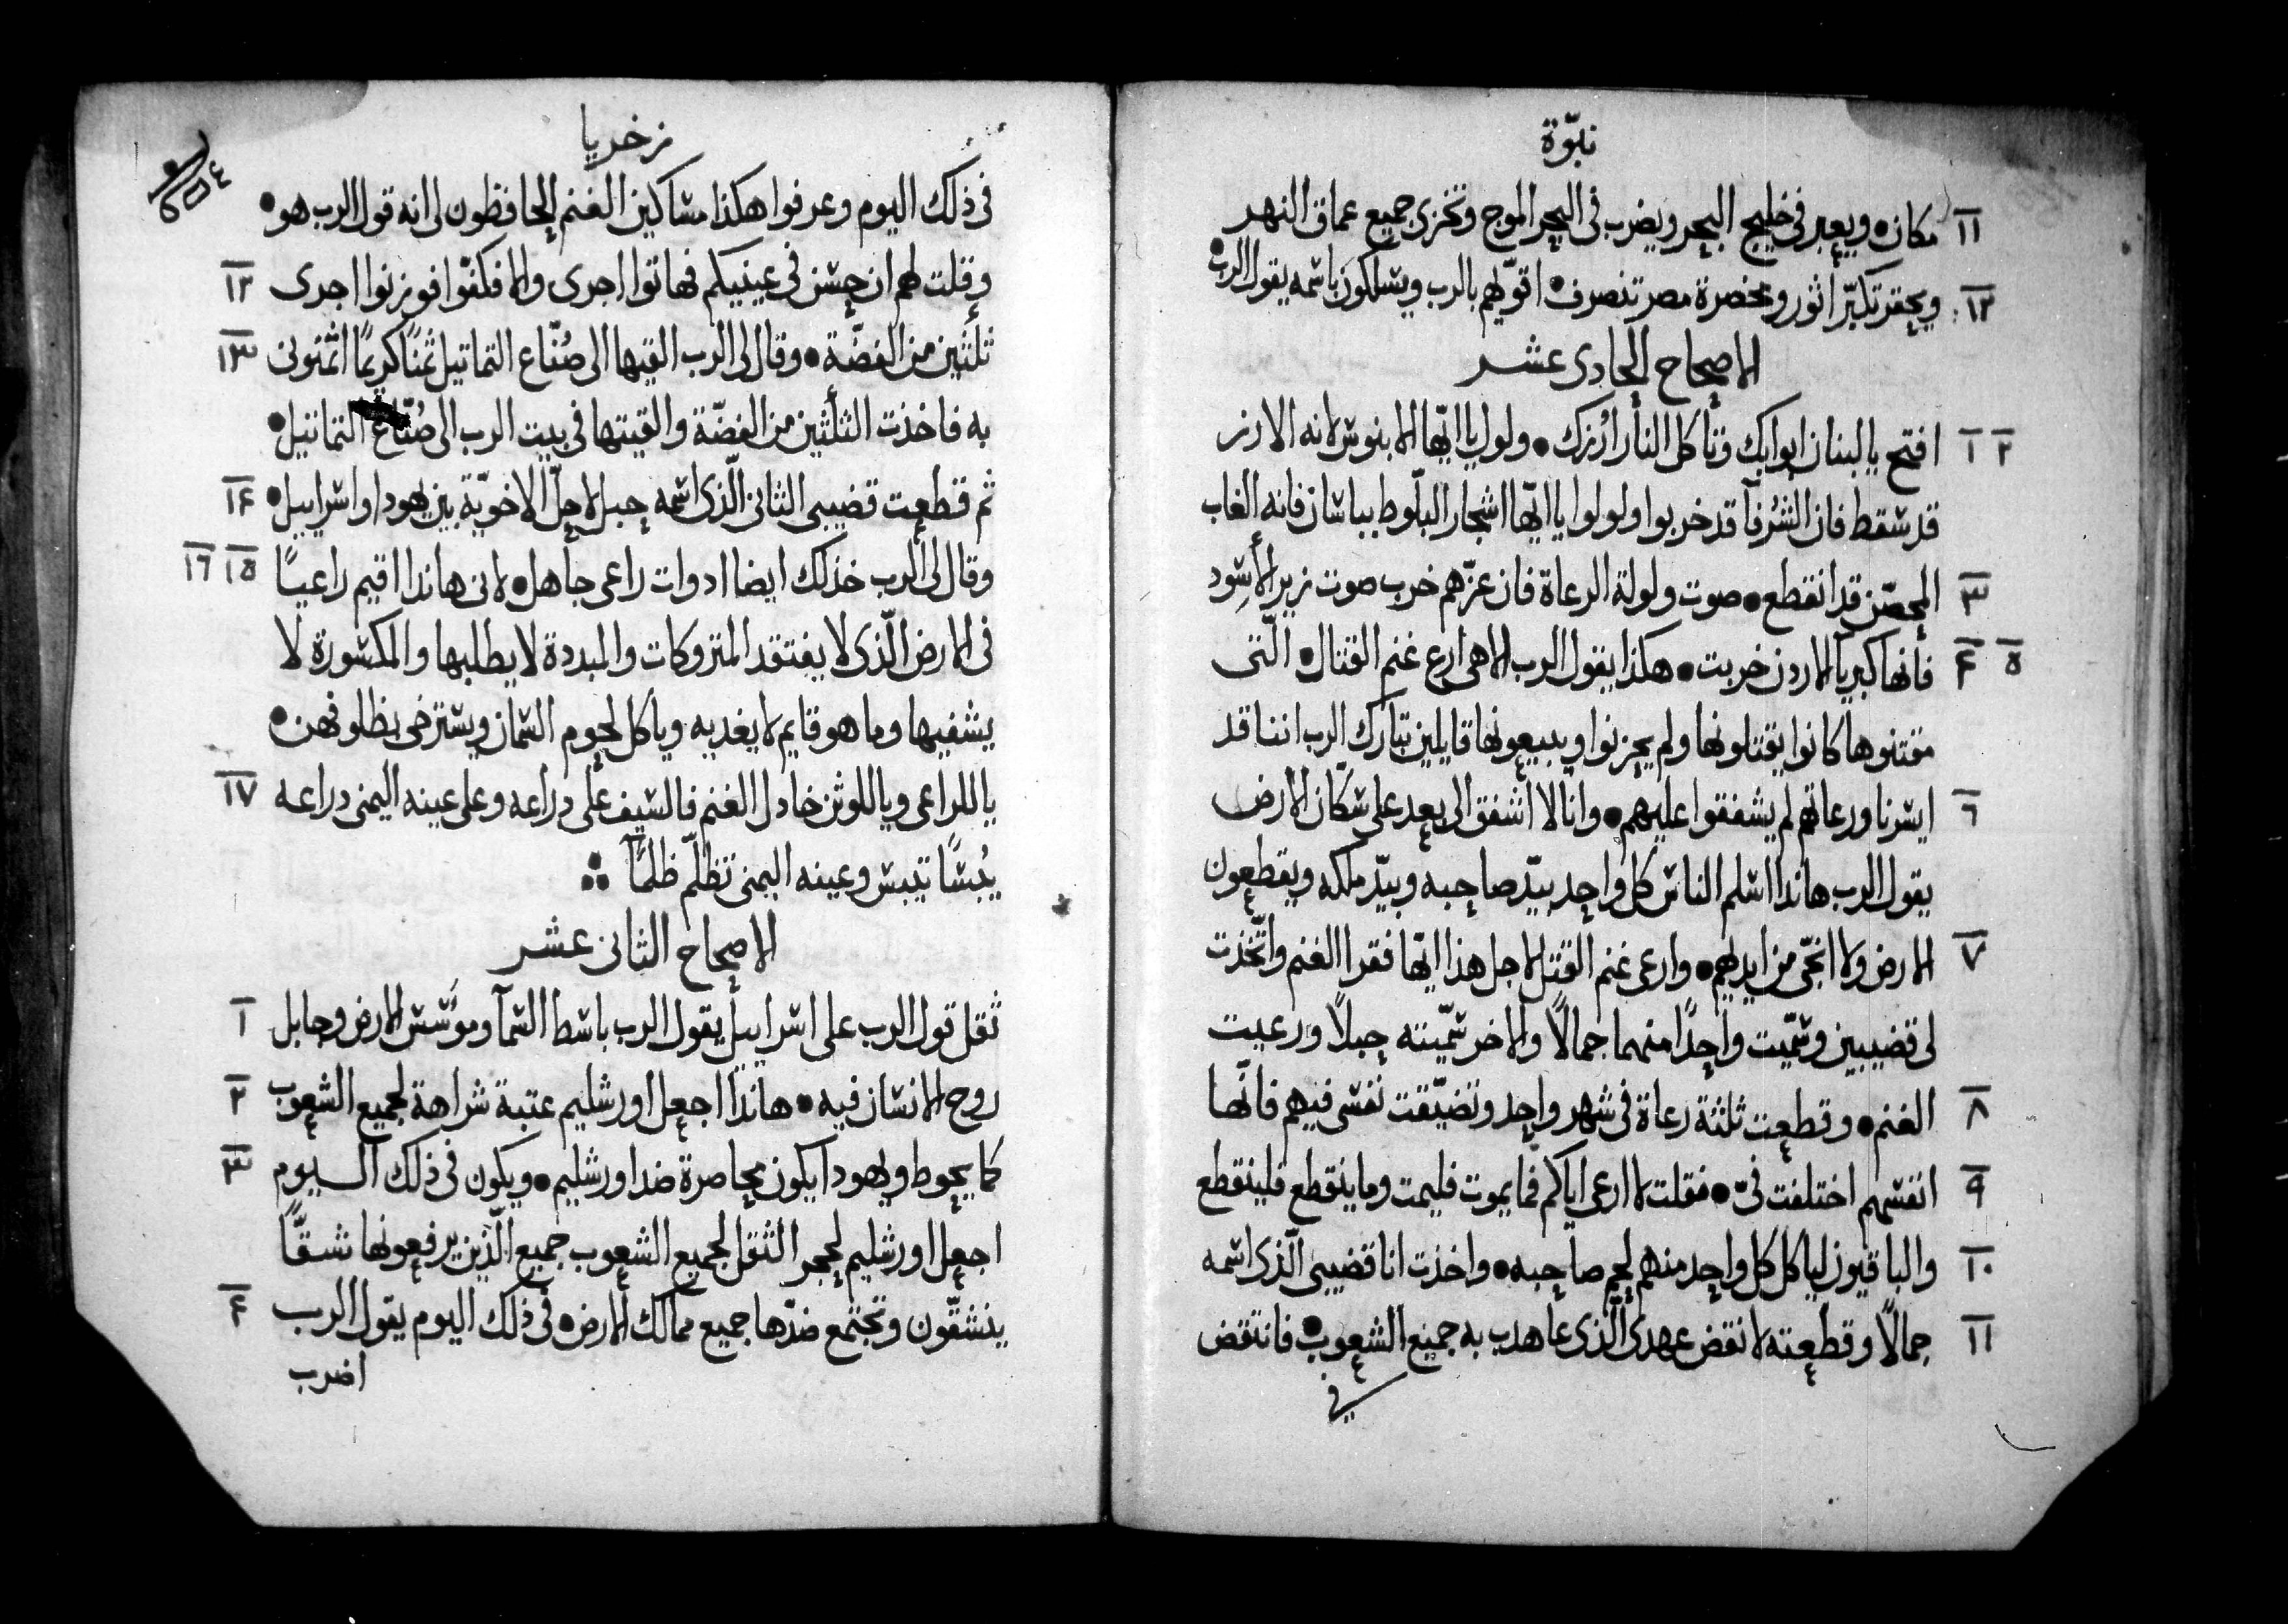 نبوّة
١١ مكان ويعبر فى خليج البحر ويضرب فى البحر الموج وتخزى جميع عماق النهر
١٢ ويحقر تكبّر اثور ومخصرة مصر تنصرف اقوّيهم بالرب ويسلكون باسمه يقول الرب
الاصحاح الحادى عشر
١ ٢ افتح يا لبنان ابوابك وتأكل النار ارزك ولول يا ايّها الابنوس لانه الارز
قد سقط فان الشرفآ قد خربوا ولولوا يا ايّها اشجار البلّوط بباسان فانه الغاب
٣ المحصّن قد انقطع صوت ولولة الرعاة فان عزّهم خرب صوت زير الأسود
٤ ٥ فانها كبريآ الاردن خربت هكذا يقول الرب الاهى ارع غنم القتال الّتى
مقتنوها كانوا يقتلونها ولم يحزنوا ويبيعونها قايلين تبارك الرب اننا قد
٦ ايسرنا ورعاتهم لم يشفقوا عليهم وانا لا اشفق الى بعد على سكّان الارض
يقول الرب هانذا اسلم الناس كل واحد بيد صاحبه وبيد ملكه ويقطعون
٧ الارض ولا انجّى من ايديهم وارعى غنم القتل لاجل هذا ايّها فقرا الغنم واتّخذت
لى قضيبين وسمّيت واحدًا منهما جمالًا والاخر سمّيته حبلًا ورعيت
٨ الغنم وقطعت ثلثة رعاة فى شهر واحد وتضيّقت نفسى فيهم فانّها
٩ انفسهم اختلفت فىّ فقلت لا ارعى اياكم فما يموت فليمت وما ينقطع فلينقطع
١٠ والباقيون لياكل كل واحد منهم لحم صاحبه واخذت انا قضيبى الّذى اسمه
١١ جمالًا وقطعته لانقض عهدى الّذى عاهدت به جميع الشعوب فانتقض
فى
زخريا
فى ذلك اليوم وعرفوا هكذا مساكين الغنم الحافظون لى انه قول الرب هو
١٢ وقلت لهم ان حسن فى عينيكم فهاتوا اجرى والا فكفّوا فوزنوا اجرى
١٣ ثلثين من الفضّة وقال لى الرب القيها الى صُنّاع التماثيل ثمنًا كريمًا اثمنونى
به فاخذت الثلثين من الفضّة والقيتها فى بيت الرب الى صُنّاع التماثيل
١٤ ثم قطعت قضيبى الثانى الّذى اسمه حبل لاحلّ الاخويّة بين يهودا واسراييل
١٥ ١٦ وقال لى الرب خذ لك ايضا ادوات راعى جاهل لانى هانذا اقيم راعيًا
فى الارض الّذى لا يفتقد المتروكات والمبددة لا يطلبها والمكسورة لا
يشفيها وما هو قايم لا يغديه وياكل لحوم السمان ويسترخى بظلوفهن
١٧ يا للراعى ويا للوثن خادل الغنم فالسيف على دراعه وعلى عينه اليمنى دراعه
يُبسًا تيبس وعينه اليمنى تظلّم ظلمًا
الاصحاح الثانى عشر
١ ثقل قول الرب على اسراييل يقول الرب باسط السمآ ومؤسس الارض وجابل
٢ روح الانسان فيه هانذا اجعل اورشليم عتبة شراهة لجميع الشعوب
٣ كما يحوط ويهودا يكون محاصرة ضد اورشليم ويكون فى ذلك اليوم
اجعل اورشليم لحجر الثقل لجميع الشعوب جميع الّذين يرفعونها شقًّا
٤ ينشقّون وتجتمع ضدّها جميع ممالك الارض فى ذلك اليوم يقول الرب
اضرب